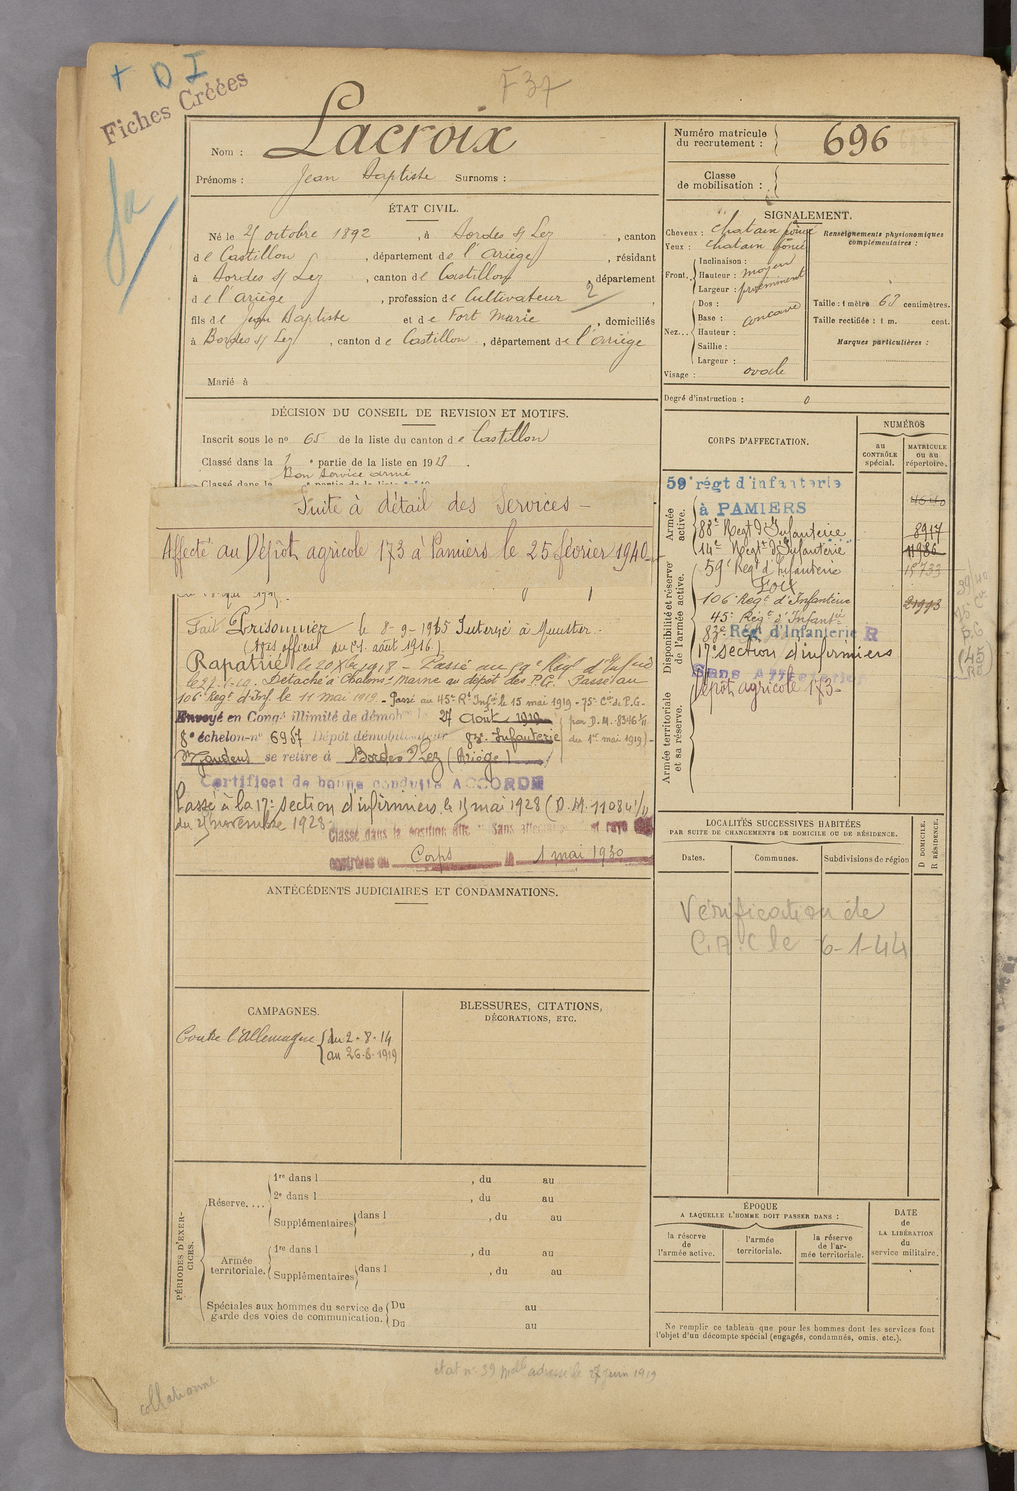 + D I
Fiches Créées
F 37
Nom : Lacroix
Prénoms : Jean Baptiste Surnoms :
Numéro matricule du recrutement : 696
Classe de mobilisation :
ÉTAT CIVIL.
Né le 25 octobre 1892, à Bordes s/ Lez, canton
de Castillon, département de l'Ariège, résidant
à Bordes s/ Lez, canton de Castillon, département
de l'Ariège, profession de Cultivateur 2
fils de Jean Baptiste et de Fort Marie, domiciliés
à Bordes s/ Lez, canton de Castillon, département de l'Ariège
Marié à
SIGNALEMENT.
Cheveux : chatain foncé
Yeux : chatain foncé
Renseignements physionomiques complémentaires :
Front. Inclinaison :
Hauteur : moyen
Largeur : proéminent
Nez... Dos :
Base : concave
Hauteur :
Saillie :
Largeur :
Visage : ovale
Taille : 1 mètre 63 centimètres.
Taille rectifiée : 1 m. cent.
Marques particulières :
Degré d'instruction : 0
DÉCISION DU CONSEIL DE REVISION ET MOTIFS.
Inscrit sous le no 65 de la liste du canton de Castillon
Classé dans la 1e partie de la liste en 1913.
Bon service armé
Suite à détail des Services -
Affecté au Dépôt agricole 173 à Pamiers le 25 février 1940
Fait Prisonnier le 8-9-1915 Interné à Munster.
(Avis officiel du 21 août 1916.)
Rapatrié le 20 Xbre 1918 - Passé au 59e Régt d'Infrie
Détaché à Chalons s/ Marne au dépôt des P.G. Passé au
106e Régt d'Inf. le 11 mai 1919 - Passé au 45e Rt Infie le 15 mai 1919 - 75e Cie de P.G.
Envoyé en Congé illimité de démob. le 27 Août 1919 (par D.M. 8346 1/11
8e échelon no 6987 Dépôt démobilisateur 83e Infanterie du 1er mai 1919)
St Gaudens se retire à Bordes s/ Lez (Ariège)
Certificat de bonne conduite ACCORDÉ
Passé à la 17e section d'infirmiers le 15 mai 1928 (D.M. 11084 1/11
du 25 novembre 1928
Classé dans la position dite "Sans affectation" et rayé des
contrôles du Corps le 1 mai 1930
CORPS D'AFFECTATION.
NUMÉROS
au CONTRÔLE spécial.
MATRICULE ou au répertoire.
Armée active.
59e régt d'infanterie
à PAMIERS
88e Regt d'Infanterie 8917
14e Regt d'Infanterie 11986
Disponibilité et réserve de l'armée active.
59e Regt d'Infanterie 15733
Foix
106e Regt d'Infanterie 21993
45e Regt d'Infantie
83e Rég d'Infanterie R
17e section d'infirmiers
Sans Affectation
Dépôt agricole 173
Armée territoriale et sa réserve.
ANTÉCÉDENTS JUDICIAIRES ET CONDAMNATIONS.
LOCALITÉS SUCCESSIVES HABITÉES
PAR SUITE DE CHANGEMENTS DE DOMICILE OU DE RÉSIDENCE.
Dates. Communes. Subdivisions de région
D DOMICILE. R RÉSIDENCE.
Vérification de
C.A.C le 6-1-44
CAMPAGNES.
Contre l'Allemagne { du 2-8-14
au 26-8-1919
BLESSURES, CITATIONS,
DÉCORATIONS, ETC.
PÉRIODES D'EXERCICES.
Réserve....
1re dans l , du au
2e dans l , du au
Supplémentaires dans l , du au
Armée territoriale.
1re dans l , du au
Supplémentaires dans l , du au
Spéciales aux hommes du service de garde des voies de communication.
Du au
Du au
ÉPOQUE
A LAQUELLE L'HOMME DOIT PASSER DANS :
la réserve de l'armée active.
l'armée territoriale.
la réserve de l'armée territoriale.
DATE de LA LIBÉRATION du service militaire.
Ne remplir ce tableau que pour les hommes dont les services font
l'objet d'un décompte spécial (engagés, condamnés, omis, etc.).
état no 39 Mdle adressé le 27 juin 1919
collationné